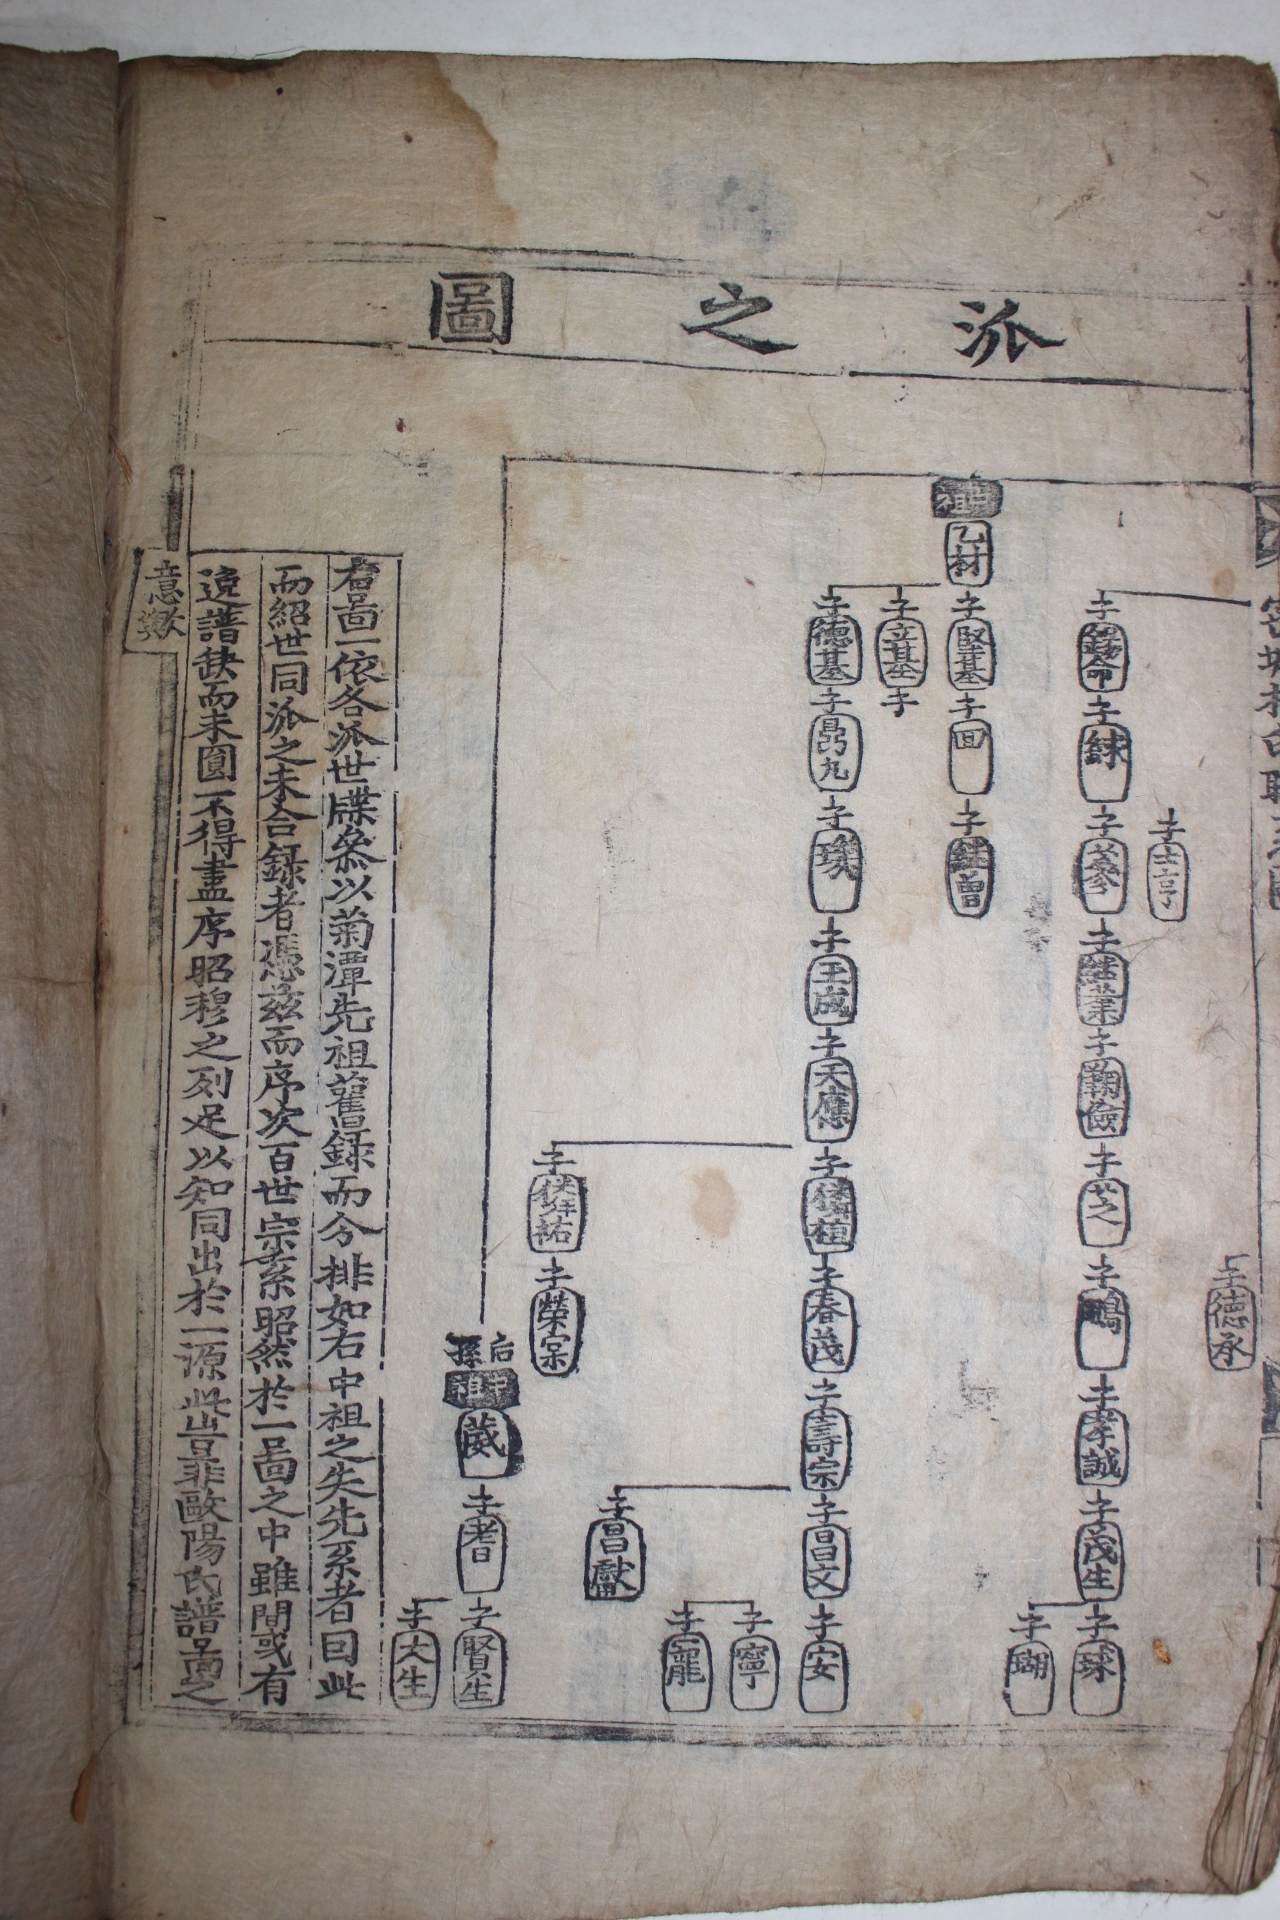 派之圖
子
子錸
子
子繼業
子
子芝
子鵬
子孝誠
子茂生
子球
子瑚
子士亨
子德承
中祖
乙材
子堅基
子回
子繼曾
子立基
子
子德基
子
子
子王成
子天應
子
子春茂
子壽宗
子昌文
子安
子寧
子寵
子昌獻
子
子榮宗
后孫
中祖
葳
子耆
子賢生
子大生
右啚一依各派世牒叅以菊潭先祖舊錄而分排如右中祖之失先系者因此
而紹世同派之未合録者憑兹而序次百世宗系昭然於一啚之中雖間或有
逸譜缺而未圓不得盡序昭穆之列足以知同出於一源此豈非歐陽氏譜啚之
意歟